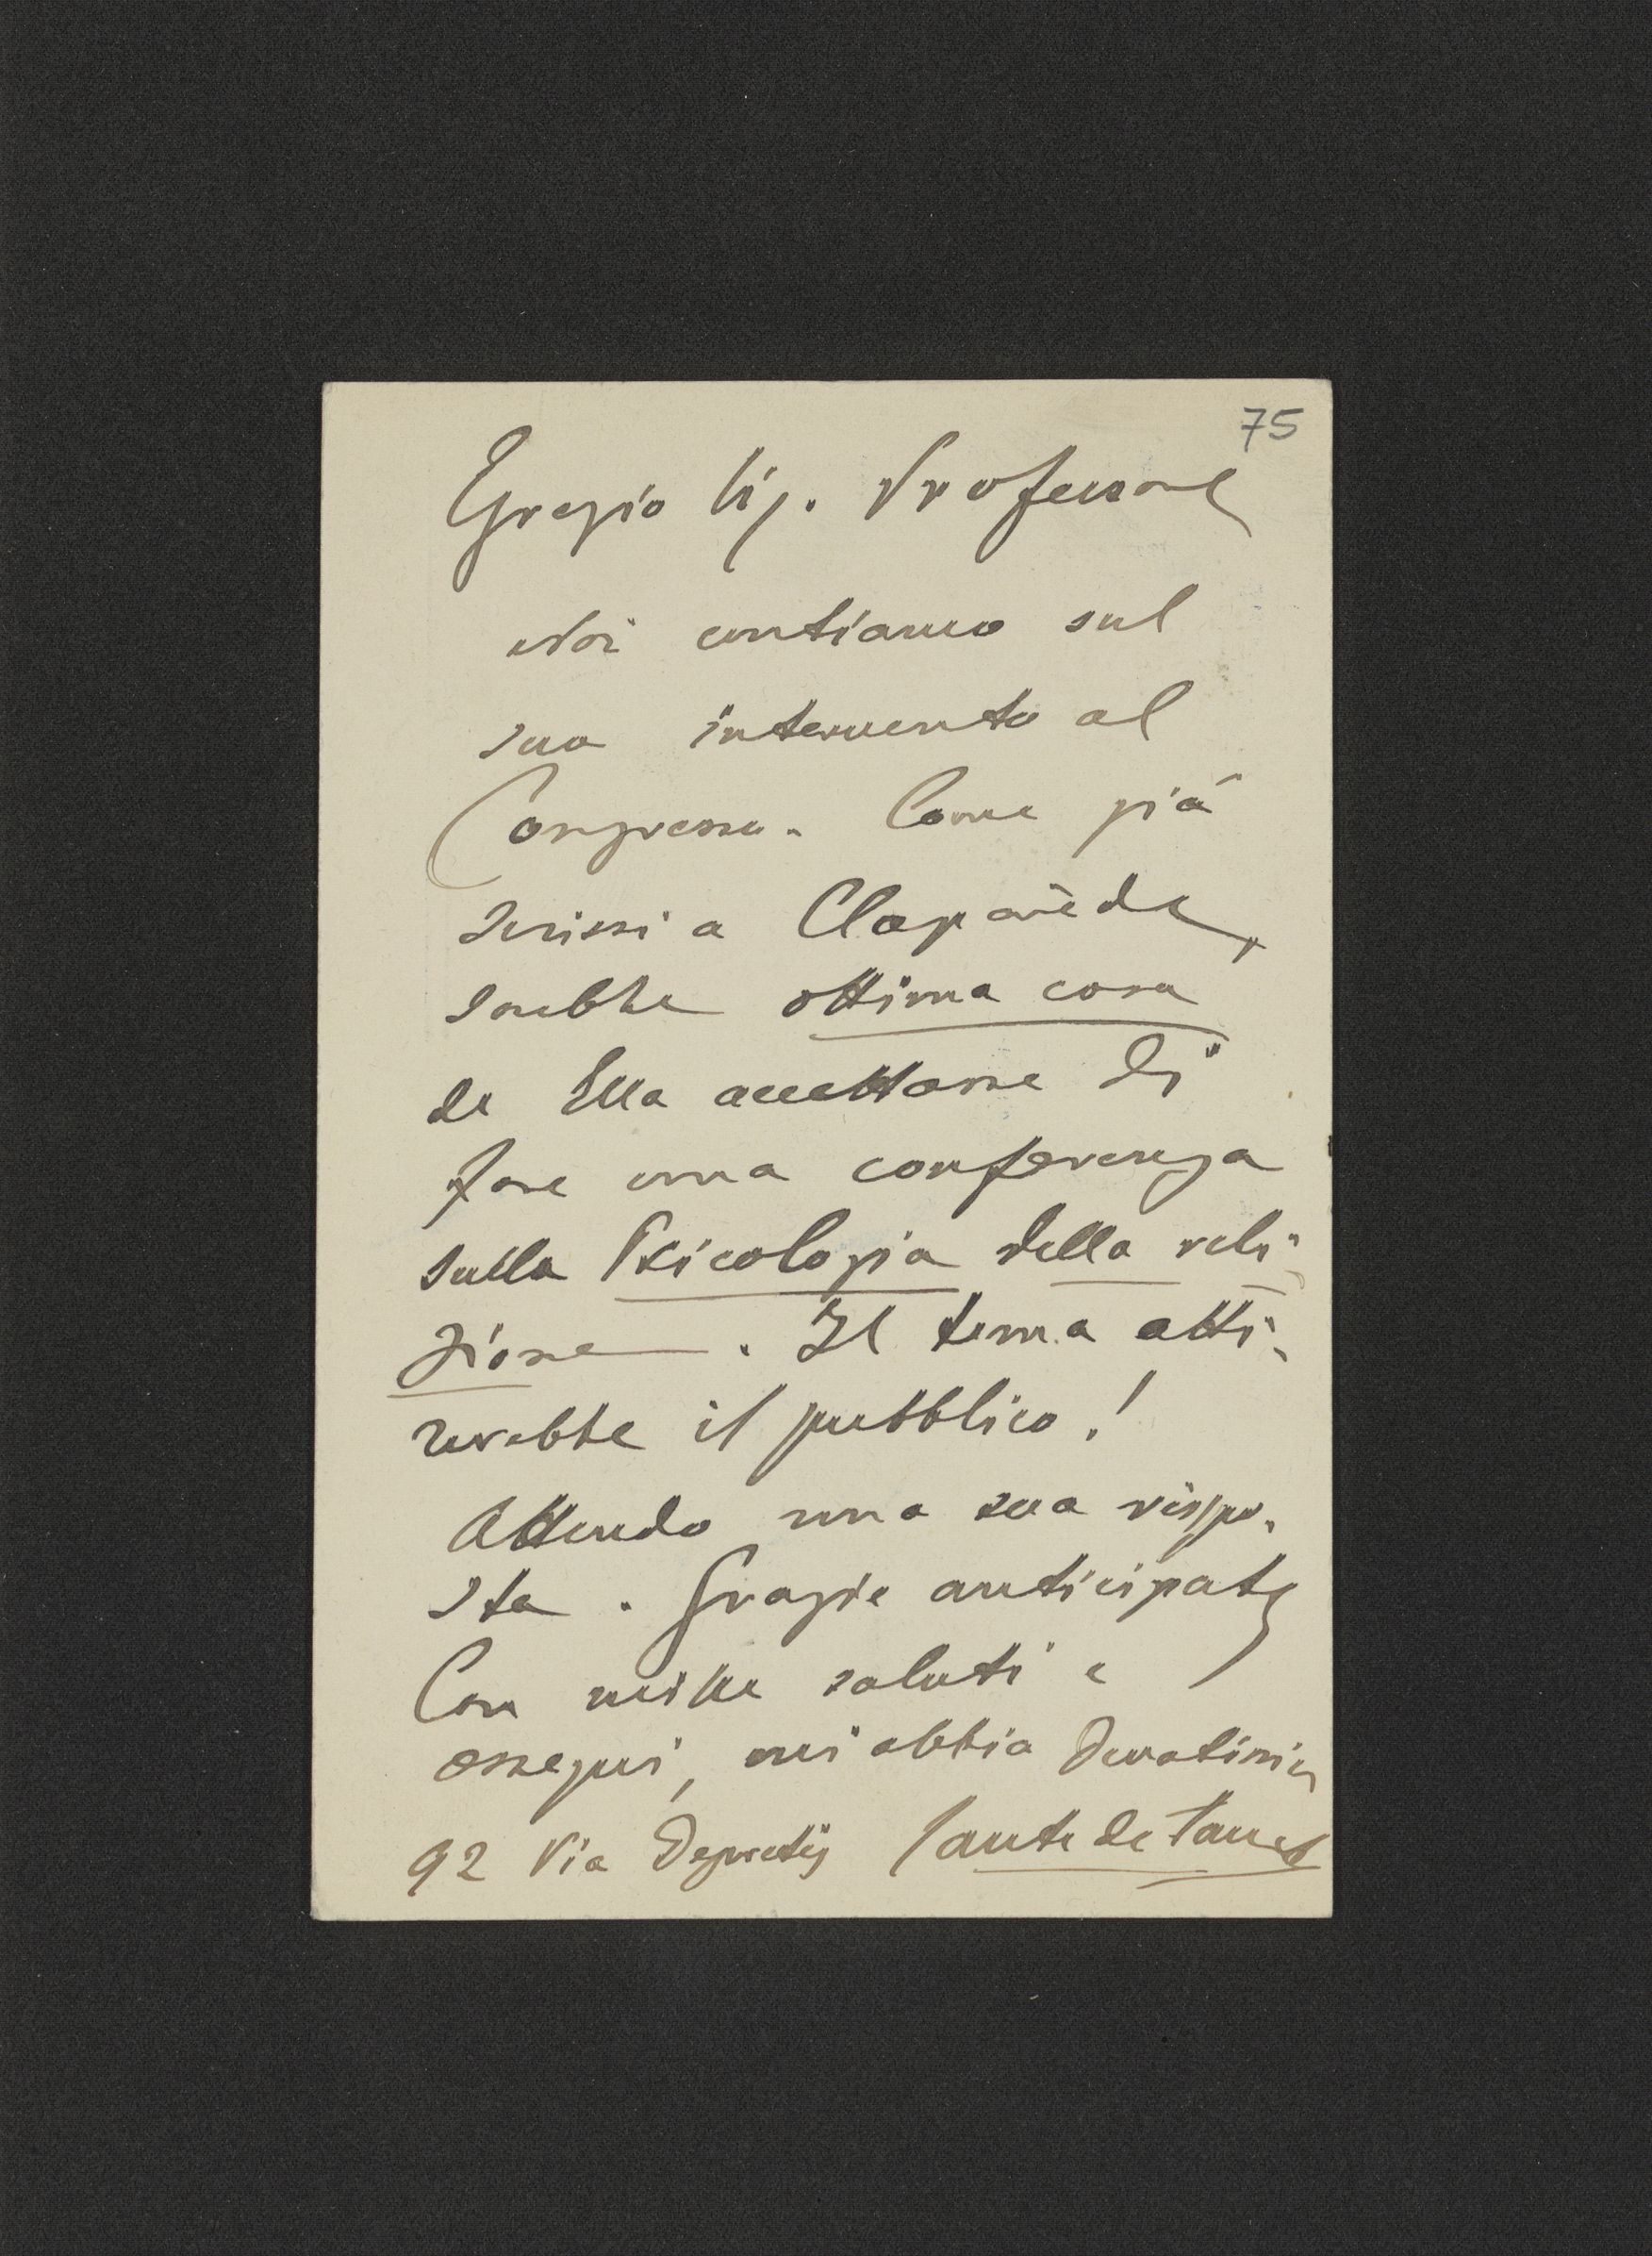 75
Egregio Sig. Professore
Noi contiamo sul
suo intervento al
Congresso. Come già
scrissi a Claparède,
sarebbe ottima cosa
se Ella accettasse di
fare una conferenza
sulla Psicologia della reli-
gione. Il tema atti-
rerebbe il pubblico!
Attendo una sua rispo-
sta. Grazie anticipate
Con mille saluti e
ossequi, mi abbia devotissimo
92 Via Depretis Sante de Sanctis